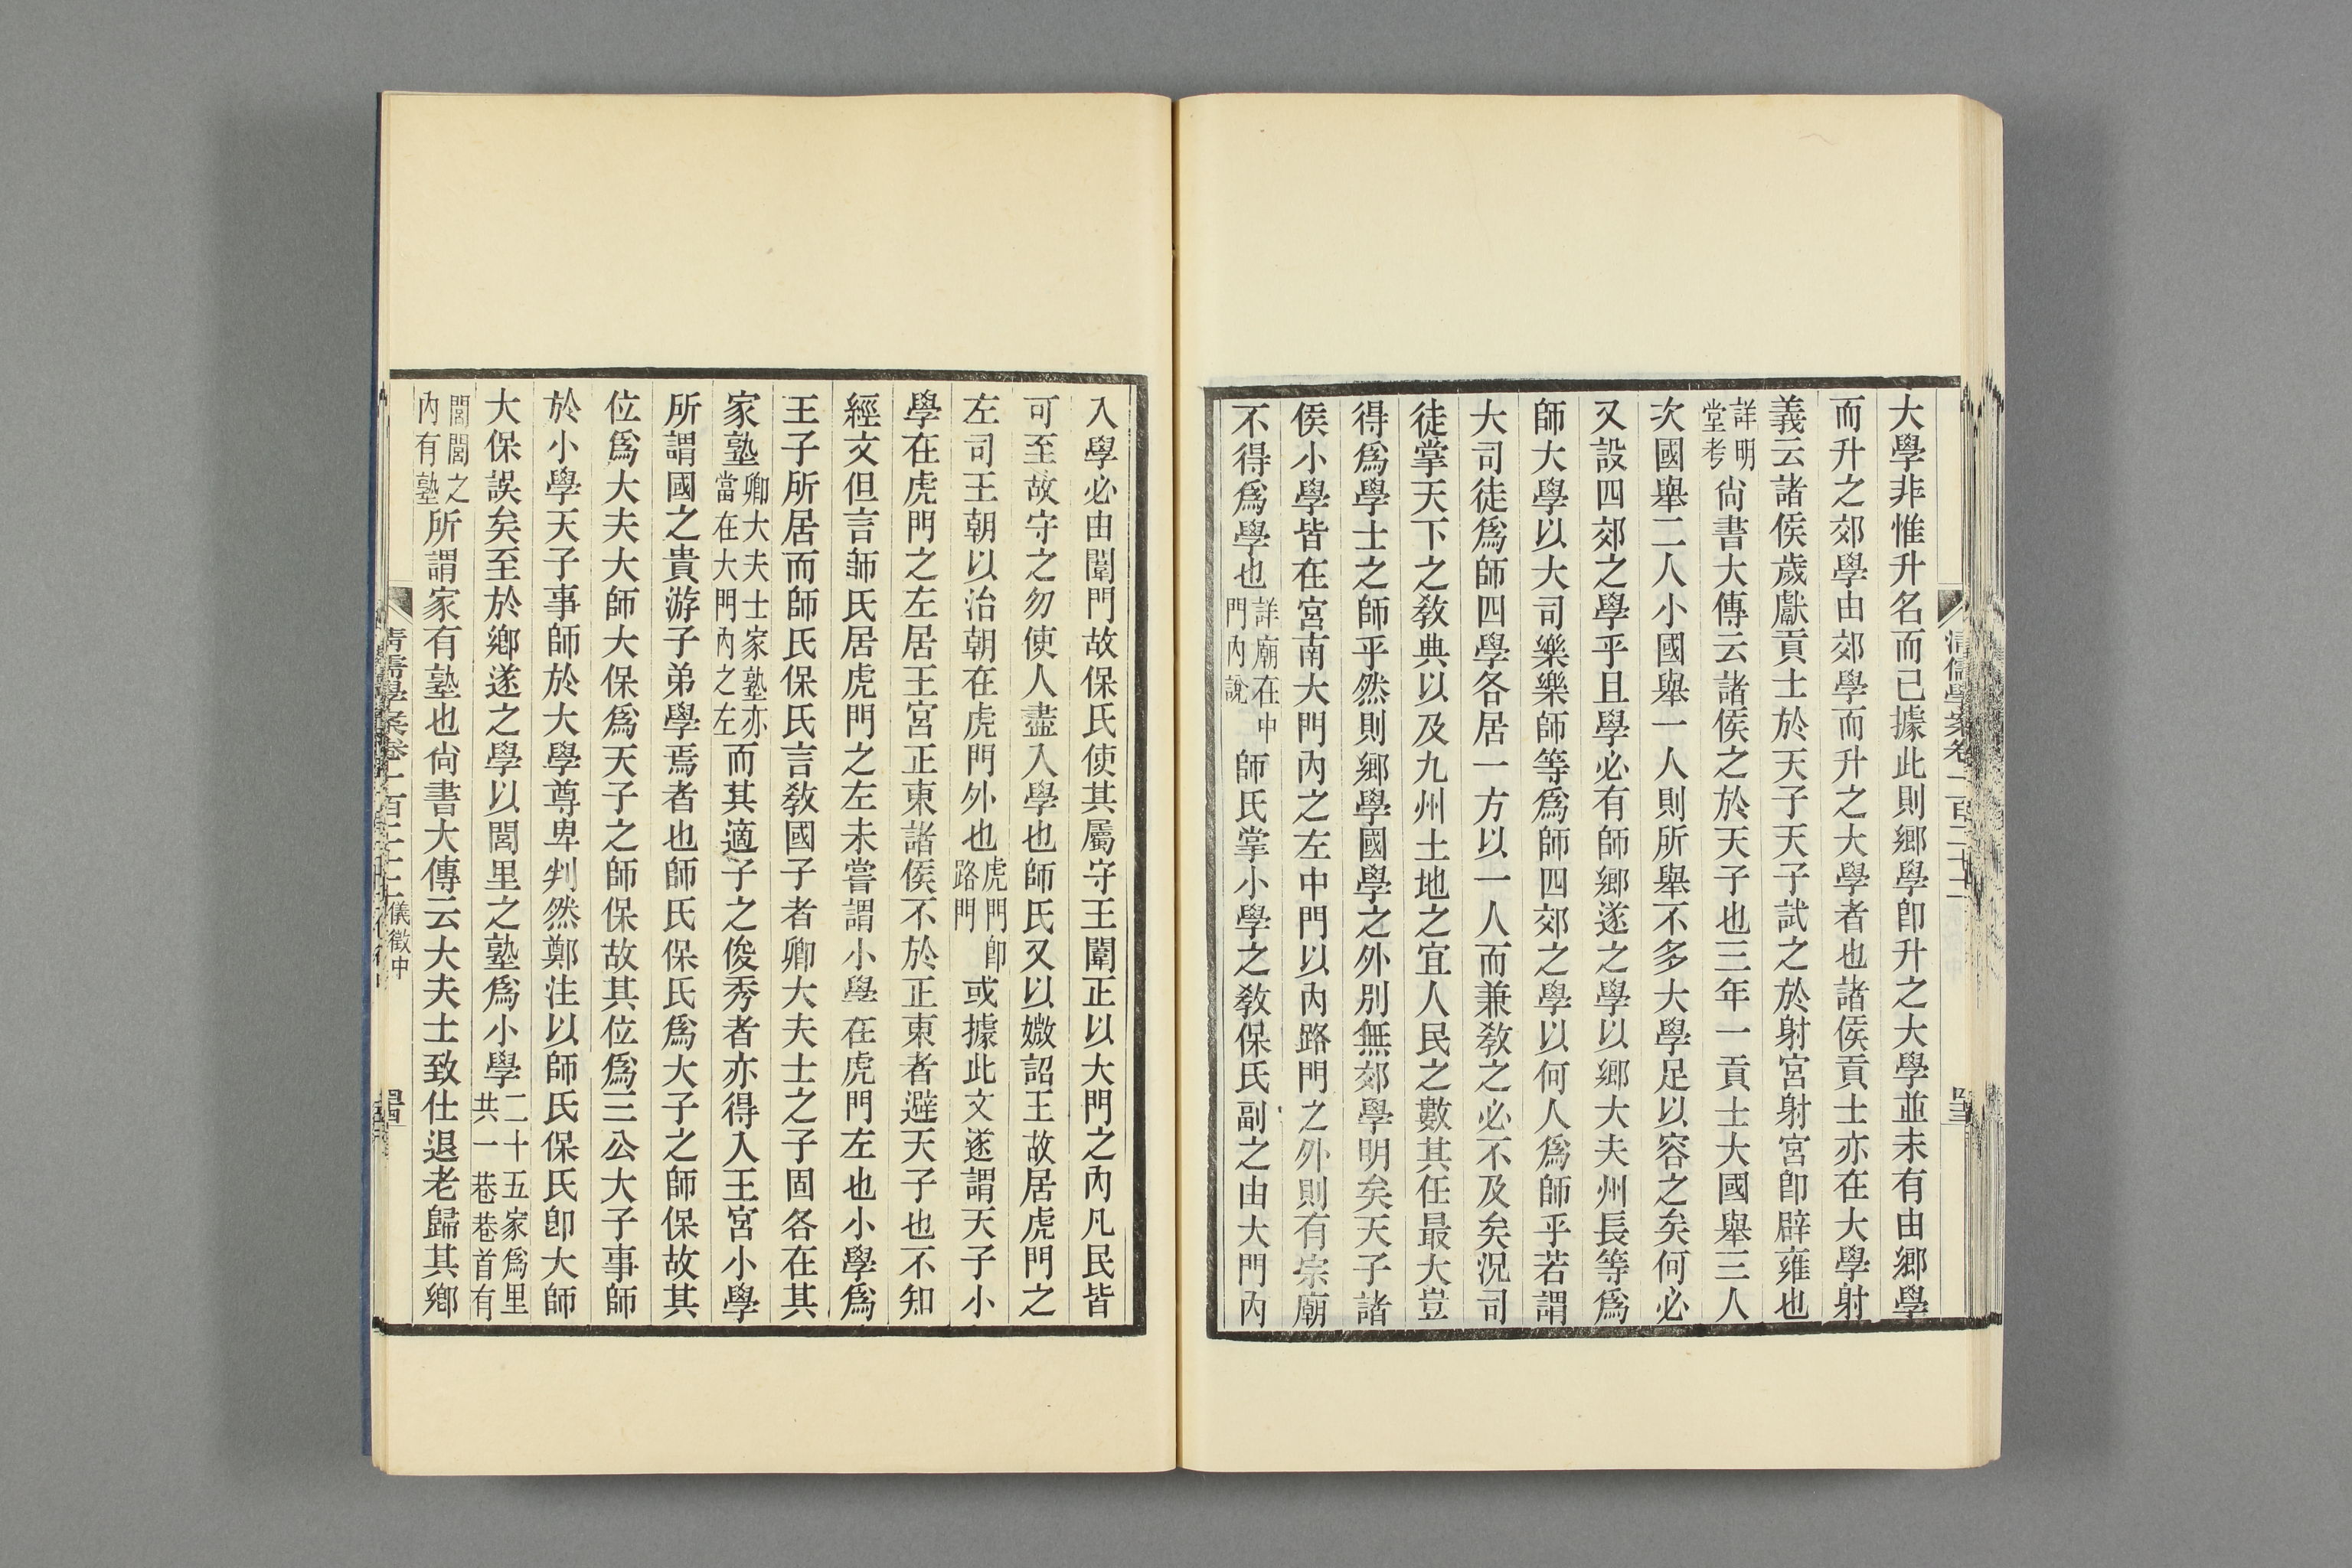 大學非惟升名而已據此則鄉學卽升之大學並未有由鄉學
而升之郊學由郊學而升之大學者也諸侯貢士亦在大學射
義云諸侯歲獻貢士於天子天子試之於射宮射宮卽辟雍也
詳明堂考尙書大傳云諸侯之於天子也三年一貢士大國舉三人
次國舉二人小國舉一人則所舉不多大學足以容之矣何必
又設四郊之學乎且學必有師鄉遂之學以鄉大夫州長等爲
師大學以大司樂樂師等爲師四郊之學以何人爲師乎若謂
大司徒爲師四學各居一方以一人而兼敎之必不及矣況司
徒掌天下之敎典以及九州土地之宜人民之數其任最大豈
得爲學士之師乎然則鄉學國學之外別無郊學明矣天子諸
侯小學皆在宮南大門內之左中門以內路門之外則有宗廟
不得爲學也詳廟在中門內說師氏掌小學之敎保氏副之由大門內
入學必由闈門故保氏使其屬守王闈正以大門之內凡民皆
可至故守之勿使人盡入學也師氏又以媺詔王故居虎門之
左司王朝以治朝在虎門外也虎門卽路門或據此文遂謂天子小
學在虎門之左居王宮正東諸侯不於正東者避天子也不知
經文但言師氏居虎門之左未嘗謂小學在虎門左也小學爲
王子所居而師氏保氏言敎國子者卿大夫士之子固各在其
家塾卿大夫士家塾亦當在大門內之左而其適子之俊秀者亦得入王宮小學
所謂國之貴游子弟學焉者也師氏保氏爲大子之師保故其
位爲大夫大師大保爲天子之師保故其位爲三公大子事師
於小學天子事師於大學尊卑判然鄭注以師氏保氏卽大師
大保誤矣至於鄉遂之學以閭里之塾爲小學二十五家爲里共一巷巷首有
閭閭之內有塾所謂家有塾也尙書大傳云大夫士致仕退老歸其鄉
清儒學案卷一百二十二
清儒學案卷一百二十二 儀徵中